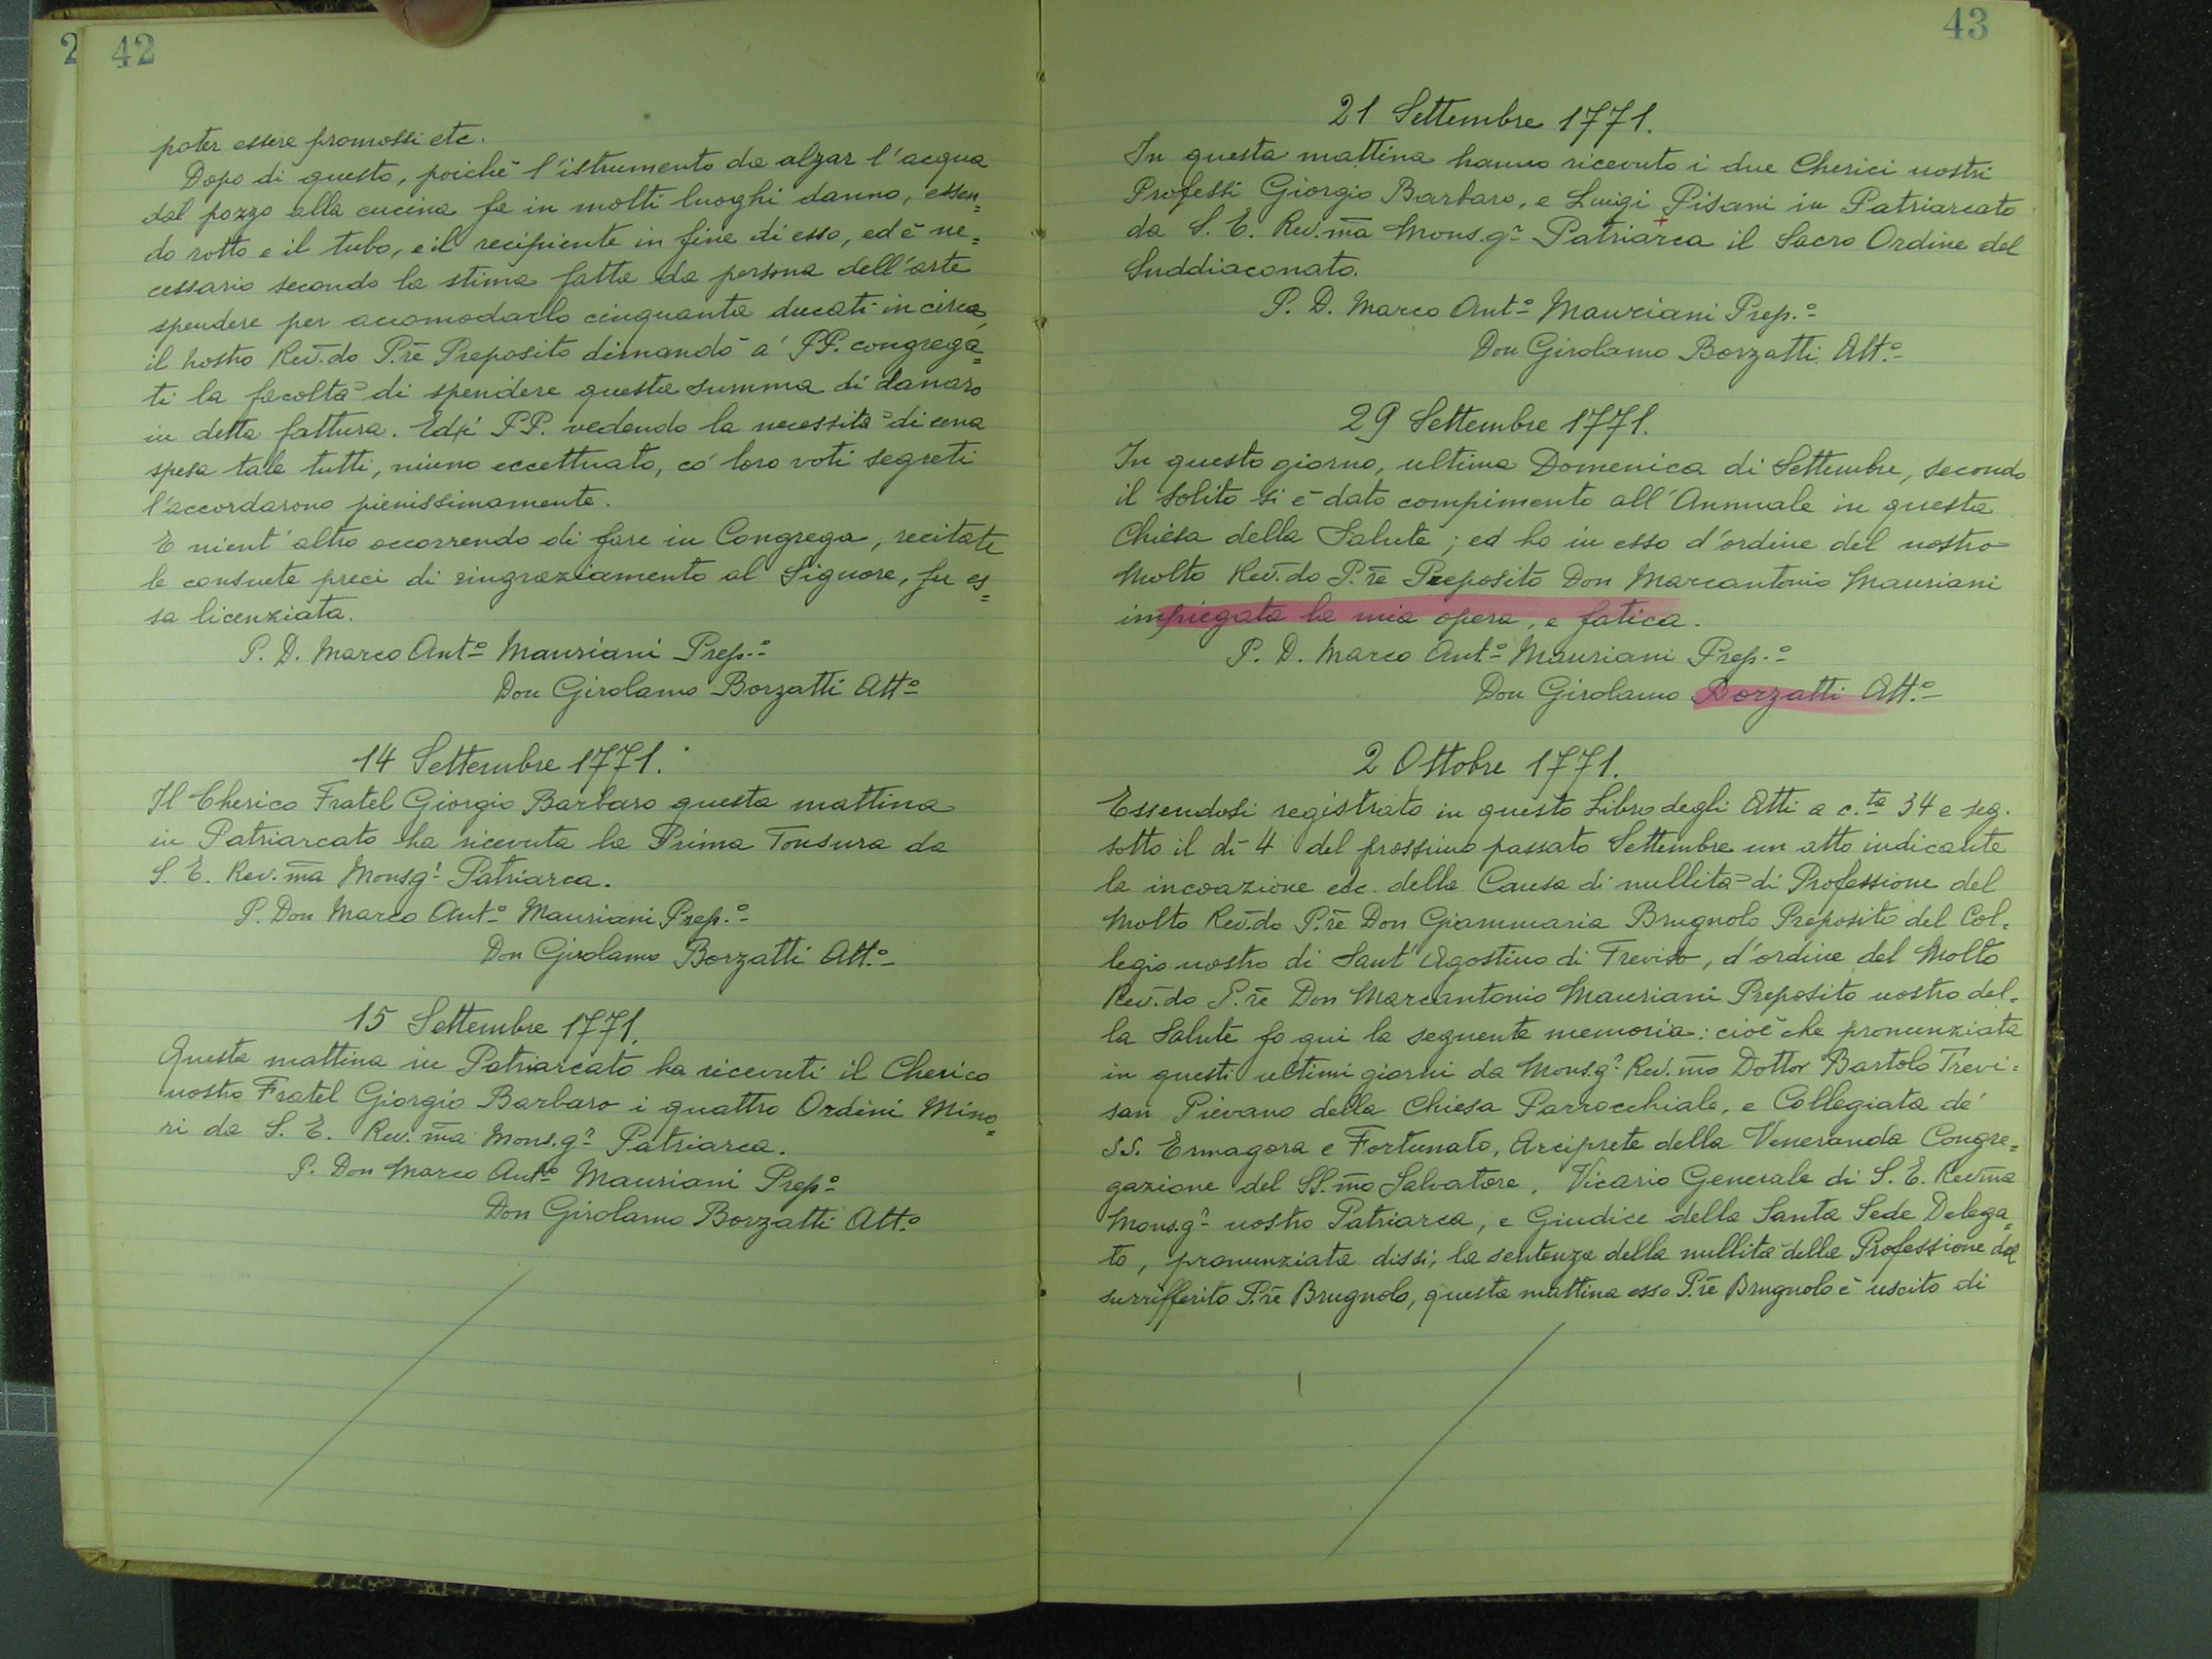 2
42
poter essere promossi etc.
Dopo di questo, poichè l'istrumento da alzar l'acqua
dal pozzo alla cucina fa in molti luoghi danno, essen=
do rotto e il tubo, e il recipiente in fine di esso, ed è ne=
cessario secondo la stima fatta da persona dell'arte
spendere per accomodarlo cinquanta ducati in circa,
il nostro Rev.do P.re Preposito dimandò a' PP. congrega=
ti la facoltà di spendere questa summa di danaro
in detta fattura. Ed i PP. vedendo la necessità di una
spesa tale tutti, niuno eccettuato, co' loro voti segreti
l'accordarono pienissimamente.
E nient'altro occorrendo di fare in Congrega, recitate
le consuete preci di ringraziamento al Signore, fu es=
sa licenziata.
P. D. Marco Ant.o Mauriani Prep.o
Don Girolamo Borzatti Att.o
14 Settembre 1771.
Il Cherico Fratel Giorgio Barbaro questa mattina
in Patriarcato ha ricevuta la Prima Tonsura da
S. E. Rev.ma Mons.gr Patriarca.
P. Don Marco Ant.o Mauriani Prep.o
Don Girolamo Borzatti Att.o
15 Settembre 1771.
Questa mattina in Patriarcato ha ricevuti il Cherico
nostro Fratel Giorgio Barbaro i quattro Ordini Mino=
ri da S. E. Rev.ma Mons.gr Patriarca.
P. Don Marco Ant.o Mauriani Prep.o
Don Girolamo Borzatti Att.o
43
21 Settembre 1771.
In questa mattina hanno ricevuto i due Cherici nostri
Professi Giorgio Barbaro, e Luigi Pisani in Patriarcato
da S. E. Rev.ma Mons.gr Patriarca il Sacro Ordine del
Suddiaconato.
P. D. Marco Ant.o Mauriani Prep.o
Don Girolamo Borzatti Att.o
29 Settembre 1771.
In questo giorno, ultima Domenica di Settembre, secondo
il solito si è dato compimento all'Annuale in questa
Chiesa della Salute; ed ho in esso d'ordine del nostro
Molto Rev.do P.re Preposito Don Marcantonio Mauriani
impiegata la mia opera, e fatica.
P. D. Marco Ant.o Mauriani Prep.o
Don Girolamo Borzatti Att.o
2 Ottobre 1771.
Essendosi registrato in questo Libro degli Atti a c.ta 34 e seg.
sotto il dì 4 del prossimo passato Settembre un atto indicante
la incoazione etc. della Causa di nullità di Professione del
Molto Rev.do P.re Don Giammaria Brugnolo Preposito del Col=
legio nostro di Sant'Agostino di Treviso, d'ordine del Molto
Rev.do P.re Don Marcantonio Mauriani Preposito nostro del=
la Salute fo qui la seguente memoria: cioè che pronunziata
in questi ultimi giorni da Mons.gr Rev.mo Dottor Bartolo Trevi=
san Pievano della Chiesa Parrocchiale, e Collegiata de'
SS. Ermagora e Fortunato, Arciprete della Veneranda Congre=
gazione del SS.mo Salvatore, Vicario Generale di S. E. Rev.ma
Mons.gr nostro Patriarca, e Giudice della Santa Sede Delega=
to, pronunziata dissi, la sentenza della nullità della Professione del
surrifferito P.re Brugnolo, questa mattina esso P.re Brugnolo è uscito di